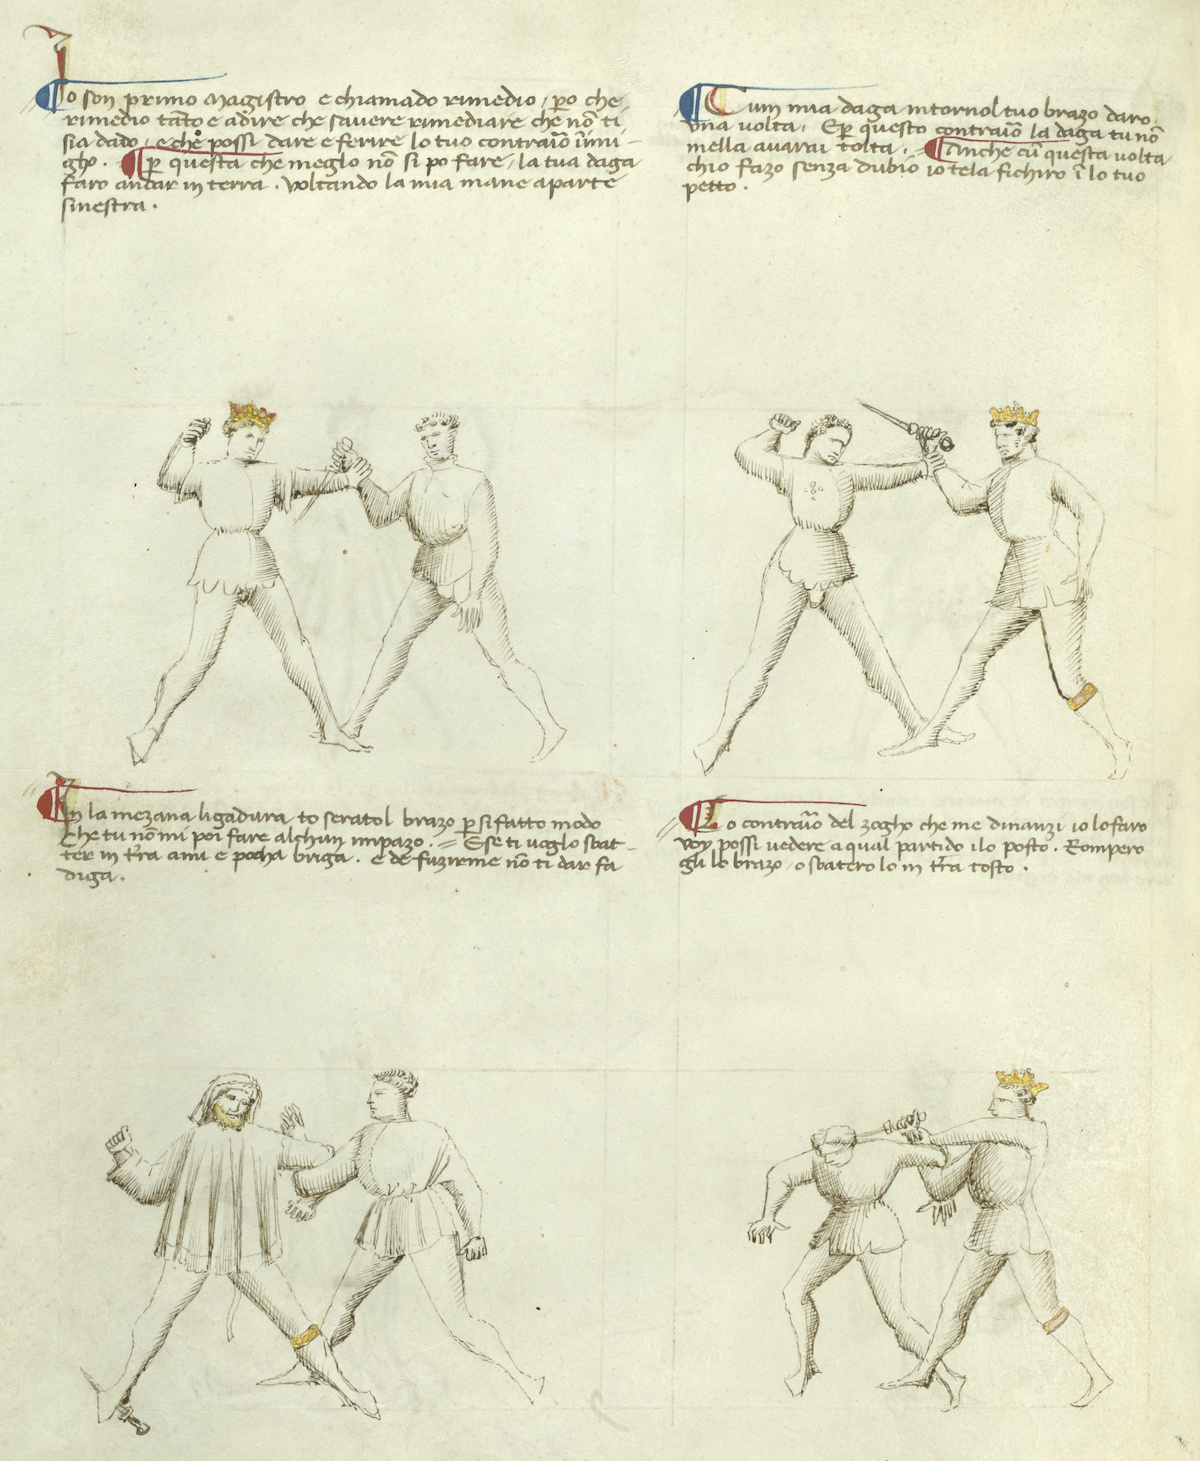 Io son primo Magistro e chiamado rimedio, po che
rimedio tãto e adire che savere rimediare che nõ ti
sia dado, e che possi dare e ferire lo tuo contraiõ inimi-
gho. p questa che meglo nõ si po fare, la tua daga
faro andar in terra. voltando la mia mane aparte
sinestra.
Cum mia daga intornol tuo brazo daro
una volta. E p questo contraiõ la daga tu nõ
mella avarai tolta. Anche cũ questa volta
chio fazo senza dubio io tela fichiro ĩ lo tuo
petto.
In la mezana ligadura to seratol brazo p si fatto modo
che tu nõ mi poi fare alchun impazo. = E se ti voglo sbat-
ter in trra a mi e pocha briga. e de fuzirme nõ ti dar fa
diga.
Lo contraiõ del zogho che me dinanzi io lo faro
voy possi vedere a qual partido ilo posto. Rompero
gli lo brazo, o sbatero lo in trra tosto.